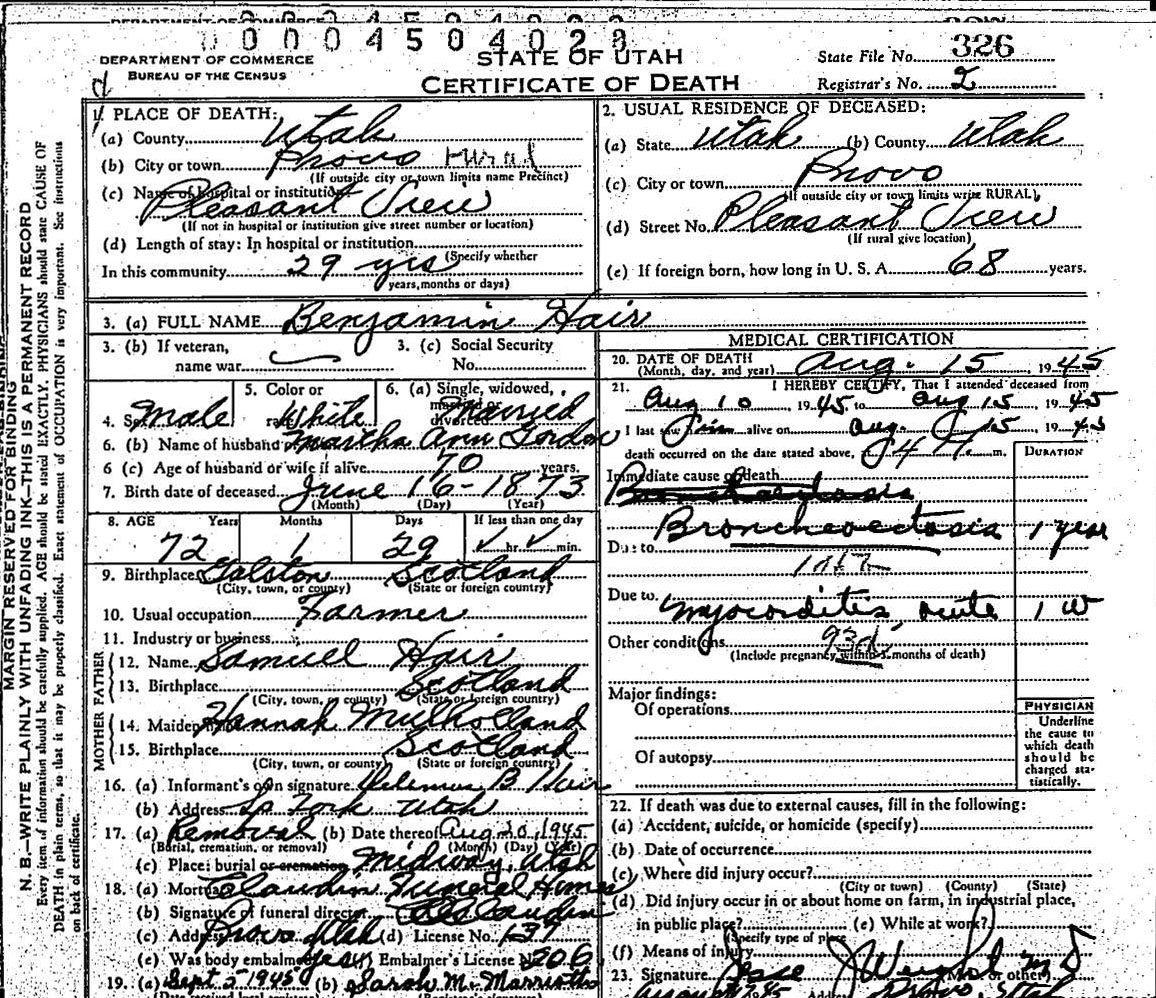 DEPARTMENT OF COMMERCE
0 0 0 4 5 0 4 0 2
DEPARTMENT OF COMMERCE
BUREAU OF THE CENSUS
STATE OF UTAH
CERTIFICATE OF DEATH
State File No. 326
Registrar's No. 2
MARGIN RESERVED FOR BINDING
N. B.—WRITE PLAINLY WITH UNFADING INK—THIS IS A PERMANENT RECORD
Every item of information should be carefully supplied. AGE should be stated EXACTLY. PHYSICIANS should state CAUSE OF
DEATH in plain terms, so that it may be properly classified. Exact statement of OCCUPATION is very important. See instructions
on back of certificate.
1. PLACE OF DEATH:
(a) County Utah
(b) City or town Provo rural
(If outside city or town limits name Precinct)
(c) Name of hospital or institution
Pleasant View
(If not in hospital or institution give street number or location)
(d) Length of stay: In hospital or institution
(Specify whether
In this community 29 yrs
years, months or days)
2. USUAL RESIDENCE OF DECEASED:
(a) State Utah (b) County Utah
(c) City or town Provo
(If outside city or town limits write RURAL)
(d) Street No. Pleasant View
(If rural give location)
(e) If foreign born, how long in U. S. A. 68 years.
3. (a) FULL NAME Benjamin Hair
3. (b) If veteran,
name war
3. (c) Social Security
No.
4. Sex Male
5. Color or
race White
6. (a) Single, widowed,
married or
divorced Married
6. (b) Name of husband Martha Ann Gordon
6 (c) Age of husband or wife if alive 70 years.
7. Birth date of deceased June 16 - 1873
(Month) (Day) (Year)
8. AGE Years Months Days If less than one day
72 1 29 hr. min.
9. Birthplace Galston Scotland
(City, town, or county) (State or foreign country)
10. Usual occupation Farmer
11. Industry or business
FATHER
12. Name Samuel Hair
13. Birthplace Scotland
(City, town, or county) (State or foreign country)
MOTHER
14. Maiden Hannah Mulholland
15. Birthplace Scotland
(City, town, or county) (State or foreign country)
16. (a) Informant's own signature B Hair
(b) Address Sp Fork Utah
17. (a) Removal (b) Date thereof Aug 20, 1945
(Burial, cremation, or removal) (Month) (Day) (Year)
(c) Place: burial or cremation Midway, Utah
18. (a) Mortuary Claudin Funeral Homes
(b) Signature of funeral director Claudin
(c) Address Provo Utah (d) License No. 139
(e) Was body embalmed (yes) Embalmer's License No. 206
19. (a) Sept 5 1945 (b) Sarah M. Marriott
MEDICAL CERTIFICATION
20. DATE OF DEATH Aug. 15 1945
(Month, day, and year)
21. I HEREBY CERTIFY, That I attended deceased from
Aug 10 1945, to Aug 15, 1945
I last saw him alive on Aug. 15, 1945
death occurred on the date stated above, m.
DURATION
Immediate cause of death
Bronchectasis
Bronchoectosia 1 year
Due to
Due to
Myocorditis, acute 1 W
Other conditions 93d
(Include pregnancy within 3 months of death)
Major findings:
Of operations
Of autopsy
PHYSICIAN
Underline
the cause to
which death
should be
charged sta-
tistically.
22. If death was due to external causes, fill in the following:
(a) Accident, suicide, or homicide (specify)
(b) Date of occurrence
(c) Where did injury occur?
(City or town) (County) (State)
(d) Did injury occur in or about home on farm, in industrial place,
in public place? (e) While at work?
(Specify type of place)
(f) Means of injury
23. Signature Jesse J Weight M. D. or other) M D
Provo, Utah